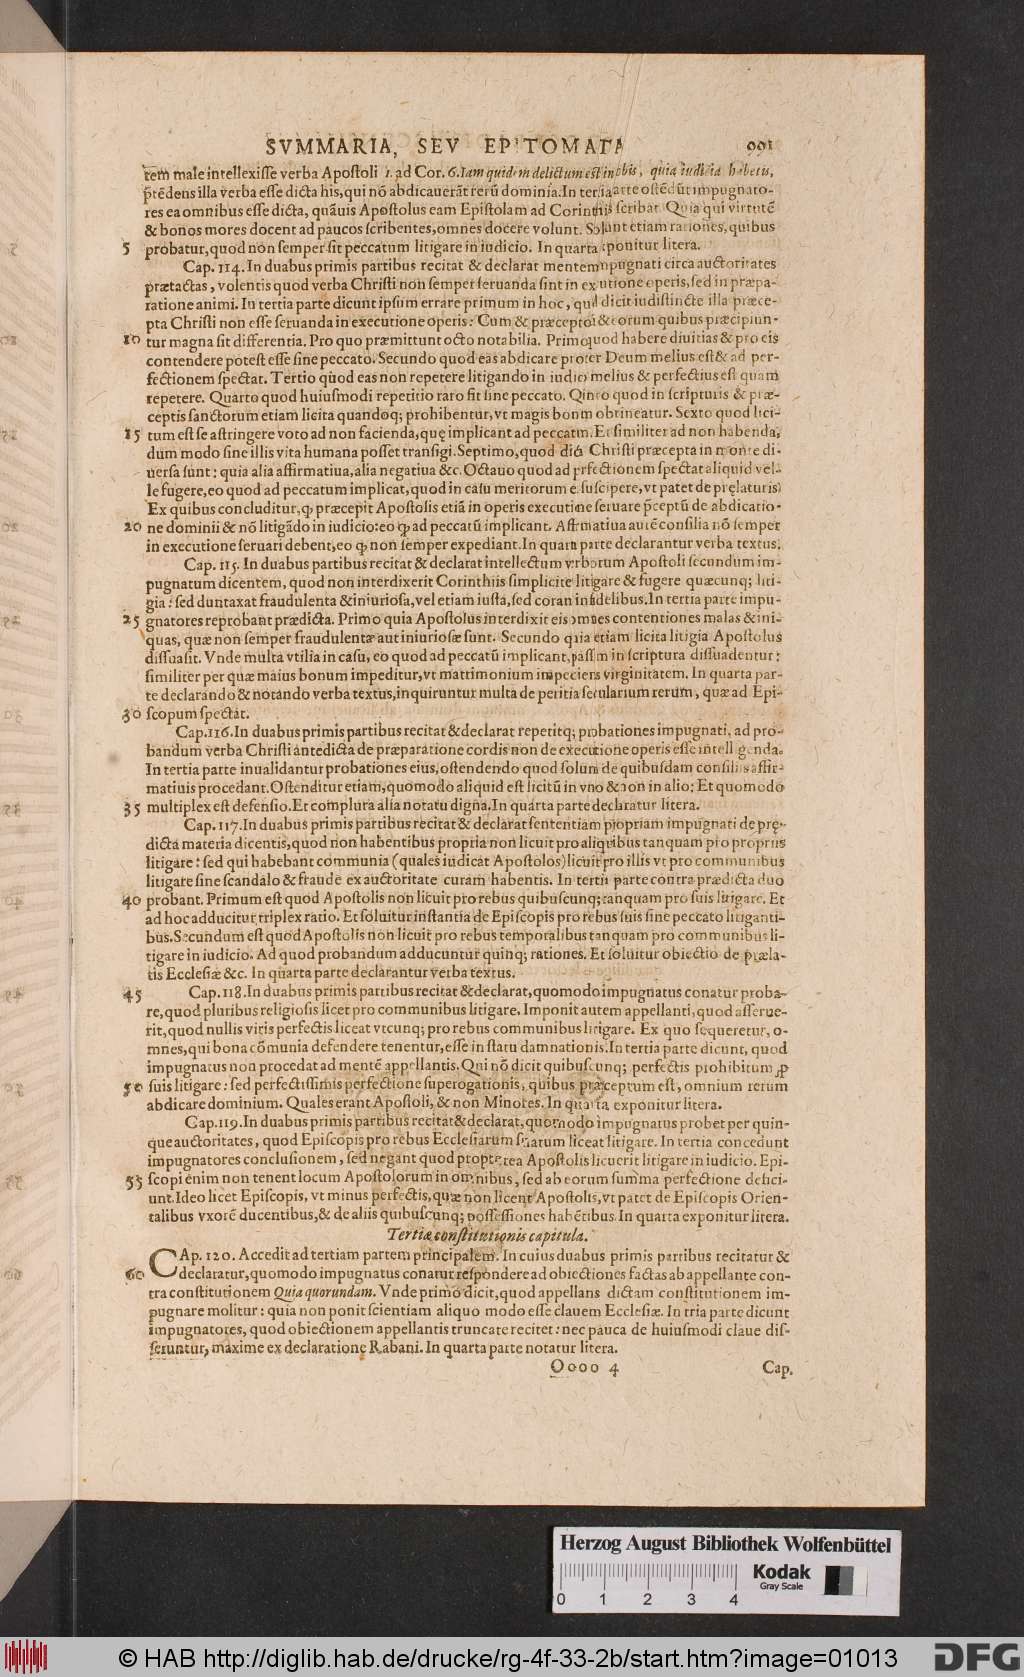 SVMMARIA, SEV EPITOMATA 991
rem male intellexisse verba Apostoli 1. ad Cor. 6. Iam quidem delictum est in vobis, quia iudicia habetis,
p̄tēdens illa verba esse dicta his, qui nō abdicauerāt rerū dominia. In tertia parte ostēdūt impugnato-
res ea omnibus esse dicta, quāuis Apostolus eam Epistolam ad Corinthis scribat. Quia qui virtutē
& bonos mores docent ad paucos scribentes, omnes docere volunt. Soluunt etiam rationes, quibus
5 probatur, quod non semper sit peccatum litigare in iudicio. In quarta exponitur litera.
Cap. 114. In duabus primis partibus recitat & declarat mentem impugnati circa auctoritates
prætactas, volentis quod verba Christi non semper seruanda sint in executione operis, sed in præpa-
ratione animi. In tertia parte dicunt ipsum errare primum in hoc, quod dicit indistincte illa præce-
pta Christi non esse seruanda in executione operis: Cum & præceptorum & eorum quibus præcipiun-
10 tur magna sit differentia. Pro quo præmittunt octo notabilia. Primo quod habere diuitias & pro eis
contendere potest esse sine peccato. Secundo quod eas abdicare propter Deum melius est & ad per-
fectionem spectat. Tertio quod eas non repetere litigando in iudicio melius & perfectius est quam
repetere. Quarto quod huiusmodi repetitio raro fit sine peccato. Quinto quod in scripturis & præ-
ceptis sanctorum etiam licita quandoq; prohibentur, vt magis bonum obtineatur. Sexto quod lici-
15 tum est se astringere voto ad non facienda, quę implicant ad peccatum. Et similiter ad non habenda,
dum modo sine illis vita humana posset transigi. Septimo, quod dicta Christi præcepta in monte di-
uersa sunt: quia alia affirmatiua, alia negatiua &c. Octauo quod ad perfectionem spectat aliquid vel-
le fugere, eo quod ad peccatum implicat, quod in casu meritorum est suscipere, vt patet de pręlaturis.
Ex quibus concluditur, ꝙ præcepit Apostolis etiā in operis executione seruare p̄ceptū de abdicatio-
20 ne dominii & nō litigādo in iudicio: eo ꝙ ad peccatū implicant. Affirmatiua autē consilia nō semper
in executione seruari debent, eo ꝙ non semper expediant. In quarta parte declarantur verba textus.
Cap. 115. In duabus partibus recitat & declarat intellectum verborum Apostoli secundum im-
pugnatum dicentem, quod non interdixerit Corinthiis simpliciter litigare & fugere quæcunq; liti-
gia: sed duntaxat fraudulenta & iniuriosa, vel etiam iusta, sed coram infidelibus. In tertia parte impu-
25 gnatores reprobant prædicta. Primo quia Apostolus interdixit eis omnes contentiones malas & ini-
quas, quæ non semper fraudulentæ aut iniuriosæ sunt. Secundo quia etiam licita litigia Apostolus
dissuasit. Vnde multa vtilia in casu, eo quod ad peccatū implicant, passim in scriptura dissuadentur:
similiter per quæ maius bonum impeditur, vt matrimonium impediens virginitatem. In quarta par-
te declarando & notando verba textus, inquiruntur multa de peritia secularium rerum, quæ ad Epi-
30 scopum spectāt.
Cap. 116. In duabus primis partibus recitat & declarat repetitq; probationes impugnati, ad pro-
bandum verba Christi antedicta de præparatione cordis non de executione operis esse intelligenda.
In tertia parte inualidantur probationes eius, ostendendo quod solum de quibusdam consiliis affir-
matiuis procedant. Ostenditur etiam, quomodo aliquid est licitū in vno & non in alio: Et quomodo
35 multiplex est defensio. Et complura alia notatu digna. In quarta parte declaratur litera.
Cap. 117. In duabus primis partibus recitat & declarat sententiam propriam impugnati de prę-
dicta materia dicentis, quod non habentibus propria non licuit pro aliquibus tanquam pro propriis
litigare: sed qui habebant communia (quales iudicat Apostolos) licuit pro illis vt pro communibus
litigare sine scandalo & fraude ex auctoritate curam habentis. In tertia parte contra prædicta duo
40 probant. Primum est quod Apostolis non licuit pro rebus quibuscunq; tanquam pro suis litigare. Et
ad hoc adducitur triplex ratio. Et soluitur instantia de Episcopis pro rebus suis sine peccato litiganti-
bus. Secundum est quod Apostolis non licuit pro rebus temporalibus tanquam pro communibus li-
tigare in iudicio. Ad quod probandum adducuntur quinq; rationes. Et soluitur obiectio de præla-
tis Ecclesiæ &c. In quarta parte declarantur verba textus.
45 Cap. 118. In duabus primis partibus recitat & declarat, quomodo impugnatus conatur proba-
re, quod pluribus religiosis licet pro communibus litigare. Imponit autem appellanti, quod asserue-
rit, quod nullis viris perfectis liceat vtcunq; pro rebus communibus litigare. Ex quo sequeretur, o-
mnes, qui bona cōmunia defendere tenentur, esse in statu damnationis. In tertia parte dicunt, quod
impugnatus non procedat ad mentē appellantis. Qui nō dicit quibuscunq; perfectis prohibitum ꝓ
50 suis litigare: sed perfectissimis perfectione superogationis, quibus præceptum est, omnium rerum
abdicare dominium. Quales erant Apostoli, & non Minores. In quarta exponitur litera.
Cap. 119. In duabus primis partibus recitat & declarat, quomodo impugnatus probet per quin-
que auctoritates, quod Episcopis pro rebus Ecclesiarum suarum liceat litigare. In tertia concedunt
impugnatores conclusionem, sed negant quod propterea Apostolis licuerit litigare in iudicio. Epi-
55 scopi enim non tenent locum Apostolorum in omnibus, sed ab eorum summa perfectione defici-
unt. Ideo licet Episcopis, vt minus perfectis, quæ non licent Apostolis, vt patet de Episcopis Orien-
talibus vxorē ducentibus, & de aliis quibuscunq; possessiones habētibus. In quarta exponitur litera.
Tertiæ constitutionis capitula.
CAp. 120. Accedit ad tertiam partem principalem. In cuius duabus primis partibus recitatur &
60 declaratur, quomodo impugnatus conatur respondere ad obiectiones factas ab appellante con-
tra constitutionem Quia quorundam. Vnde primo dicit, quod appellans dictam constitutionem im-
pugnare molitur: quia non ponit scientiam aliquo modo esse clauem Ecclesiæ. In tria parte dicunt
impugnatores, quod obiectionem appellantis truncate recitet: nec pauca de huiusmodi claue dis-
seruntur, maxime ex declaratione Rabani. In quarta parte notatur litera.
Oooo 4 Cap.
Herzog August Bibliothek Wolfenbüttel
Kodak
Gray Scale
0 1 2 3 4
© HAB http://diglib.hab.de/drucke/rg-4f-33-2b/start.htm?image=01013
DFG